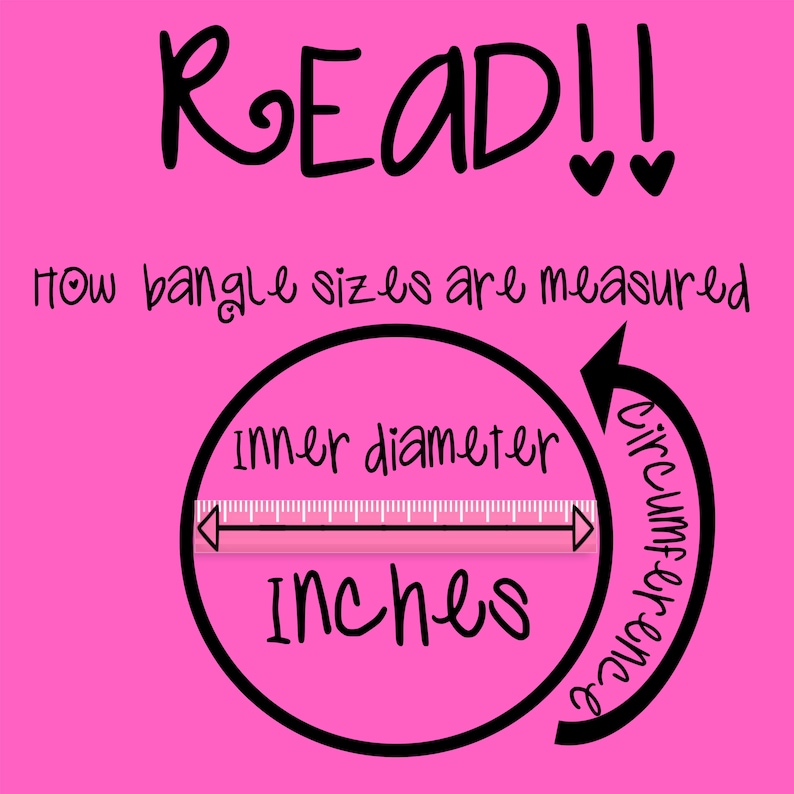 READ!!
How bangle sizes are measured
Inner diameter
Inches
circumference